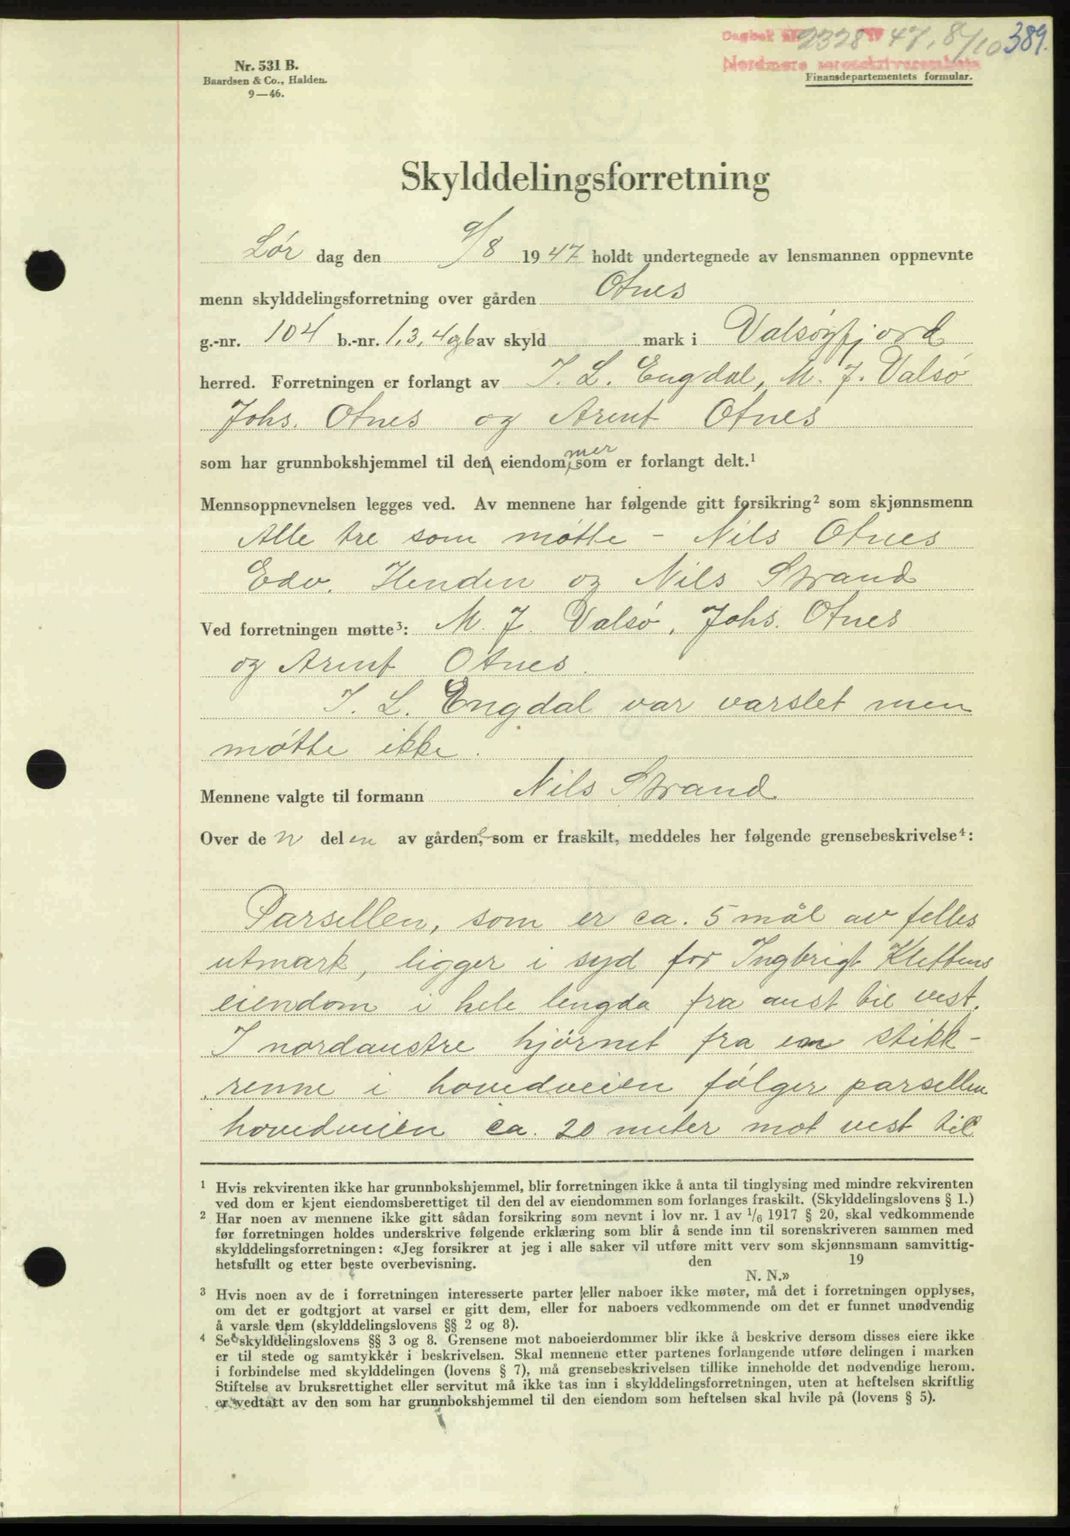 Dagbok nr. 2328 19 47, 8/10 389.
Nordmøre sorenskriverembete
Nr. 531 B.
Baardsen & Co., Halden.
9—46.
Finansdepartementets formular.
Skylddelingsforretning
Lør dag den 9/8 1947 holdt undertegnede av lensmannen oppnevnte
menn skylddelingsforretning over gården Otnes
g.-nr. 104 b.-nr. 1, 3, 4 og 6 av skyld mark i Valsøyfjord
herred. Forretningen er forlangt av I. L. Engdal, M. J. Valsø
Johs. Otnes og Arent Otnes
som har grunnbokshjemmel til den eiendommer som er forlangt delt.¹
Mennsoppnevnelsen legges ved. Av mennene har følgende gitt forsikring² som skjønnsmenn
Alle tre som møtte - Nils Otnes
Edv. Henden og Nils Strand
Ved forretningen møtte³: M. J. Valsø, Johs. Otnes
og Arent Otnes.
I. L. Engdal var varslet men
møtte ikke.
Mennene valgte til formann Nils Strand
Over de n del en av gården, som er fraskilt, meddeles her følgende grensebeskrivelse⁴:
Parsellen, som er ca. 5 mål av felles
utmark, ligger i syd for Ingbrigt Klettens
eiendom i hele lengda fra aust til vest.
I nordaustre hjørnet fra en stikk-
renne i hovedveien følger parsellen
hovedveien ca. 20 meter mot vest til
¹ Hvis rekvirenten ikke har grunnbokshjemmel, blir forretningen ikke å anta til tinglysing med mindre rekvirenten
ved dom er kjent eiendomsberettiget til den del av eiendommen som forlanges fraskilt. (Skylddelingslovens § 1.)
² Har noen av mennene ikke gitt sådan forsikring som nevnt i lov nr. 1 av 1/6 1917 § 20, skal vedkommende
før forretningen holdes underskrive følgende erklæring som blir å sende inn til sorenskriveren sammen med
skylddelingsforretningen: «Jeg forsikrer at jeg i alle saker vil utføre mitt verv som skjønnsmann samvittig-
hetsfullt og etter beste overbevisning. den 19
N. N.»
³ Hvis noen av de i forretningen interesserte parter eller naboer ikke møter, må det i forretningen opplyses,
om det er godtgjort at varsel er gitt dem, eller for naboers vedkommende om det er funnet unødvendig
å varsle dem (skylddelingslovens §§ 2 og 8).
⁴ Se skylddelingslovens §§ 3 og 8. Grensene mot naboeierdommer blir ikke å beskrive dersom disses eiere ikke
er til stede og samtykker i beskrivelsen. Skal mennene etter partenes forlangende utføre delingen i marken
i forbindelse med skylddelingen (lovens § 7), må grensebeskrivelsen tillike inneholde det nødvendige herom.
Stiftelse av bruksrettighet eller servitut må ikke tas inn i skylddelingsforretningen, uten at heftelsen skriftlig
er vedtatt av den som har grunnbokshjemmel til den eiendom som heftelsen skal hvile på (lovens § 5).